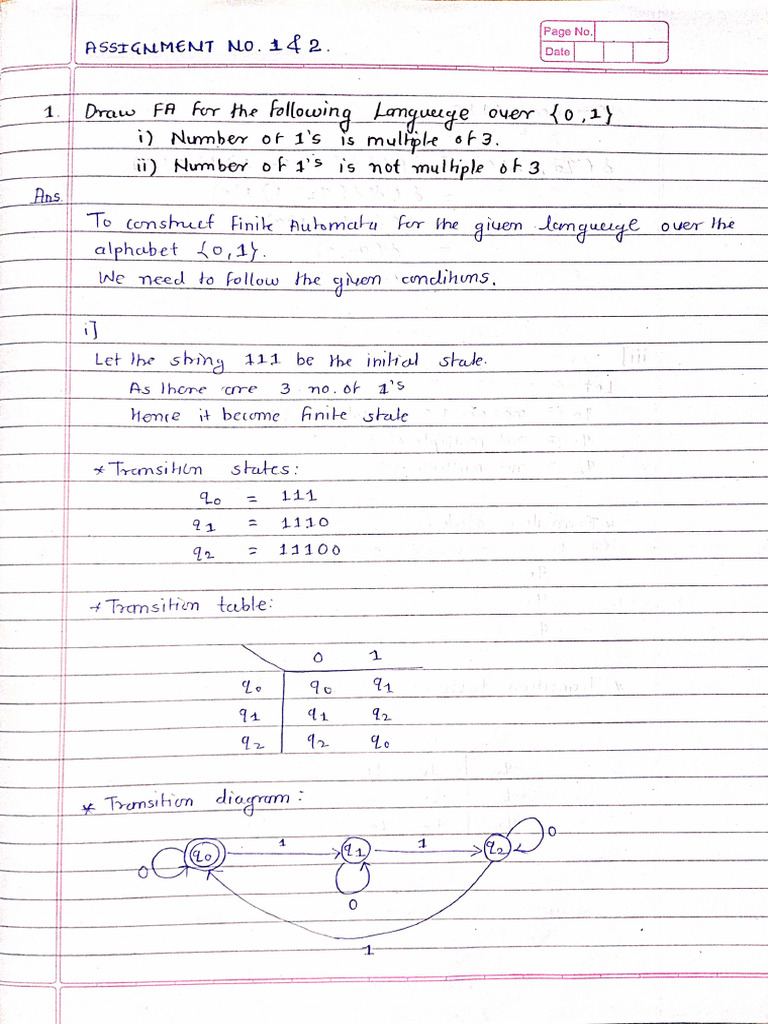 ASSIGNMENT NO. 1 & 2.
Page No.
Date
1. Draw FA for the following Language over {0,1}
i) Number of 1's is multiple of 3.
ii) Number of 1's is not multiple of 3
Ans.
To construct Finite Automata for the given language over the
alphabet {0,1}.
We need to follow the given conditions.
i]
Let the string 111 be the initial state.
As there are 3 no. of 1's
Hence it become finite state
* Transition states:
q0 = 111
q1 = 1110
q2 = 11100
* Transition table:
0 1
q0 q0 q1
q1 q1 q2
q2 q2 q0
* Transition diagram:
0 q0 1 q1 1 q2 0
0
1